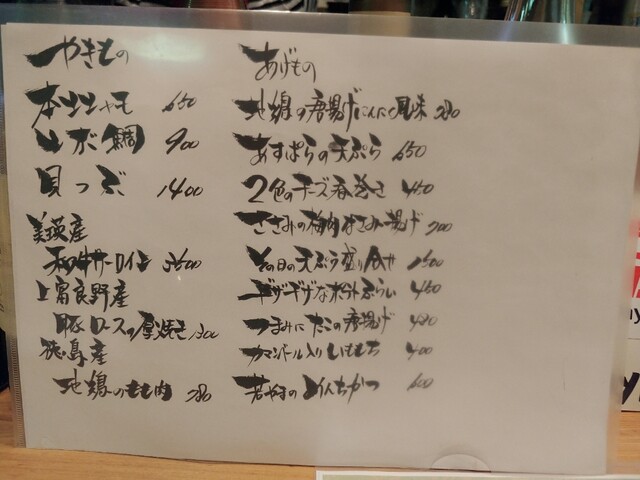 やきもの
本シシャモ 650
レンガ鯛 900
貝つぶ 1400
美瑛産
和牛サーロイン 3600
上富良野産
豚ロースの厚焼き 1300
徳島産
地鶏のもも肉 780
あげもの
地鶏の唐揚げにんにく風味 780
あすぱらの天ぷら 650
2色のチーズ春巻き 450
ささみの梅肉はさみ揚げ 700
その日の天ぷら盛り合せ 1500
ギザギザなポテトふらい 450
つまみにたこの唐揚げ 480
カマンベール入りいももち 400
とんちかつ 600